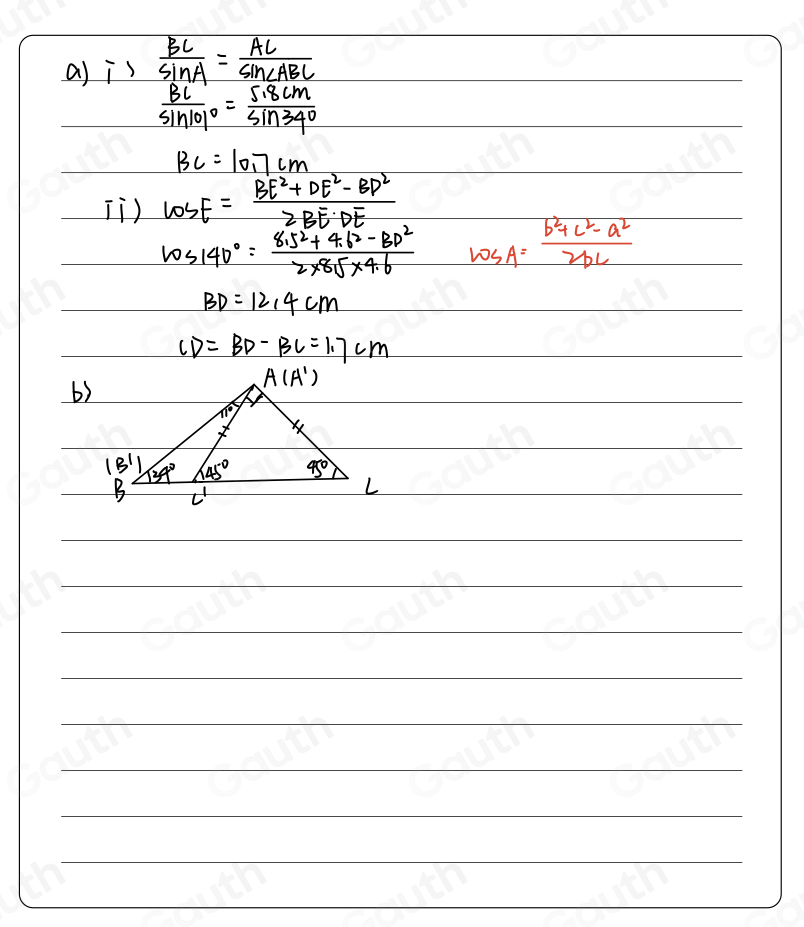 a) i) BC/sinA = AC/sin∠ABC
BC/sin101° = 5.8cm/sin34°
BC = 10.7 cm
ii) cosE = (BE² + DE² - BD²)/(2BE·DE)
cos140° = (8.5² + 4.6² - BD²)/(2×8.5×4.6)
cosA = (b²+c²-a²)/(2bc)
BD = 12.4 cm
CD = BD - BC = 1.7 cm
b)
A (A')
(B')
B
34°
C'
45°
C
Gauth